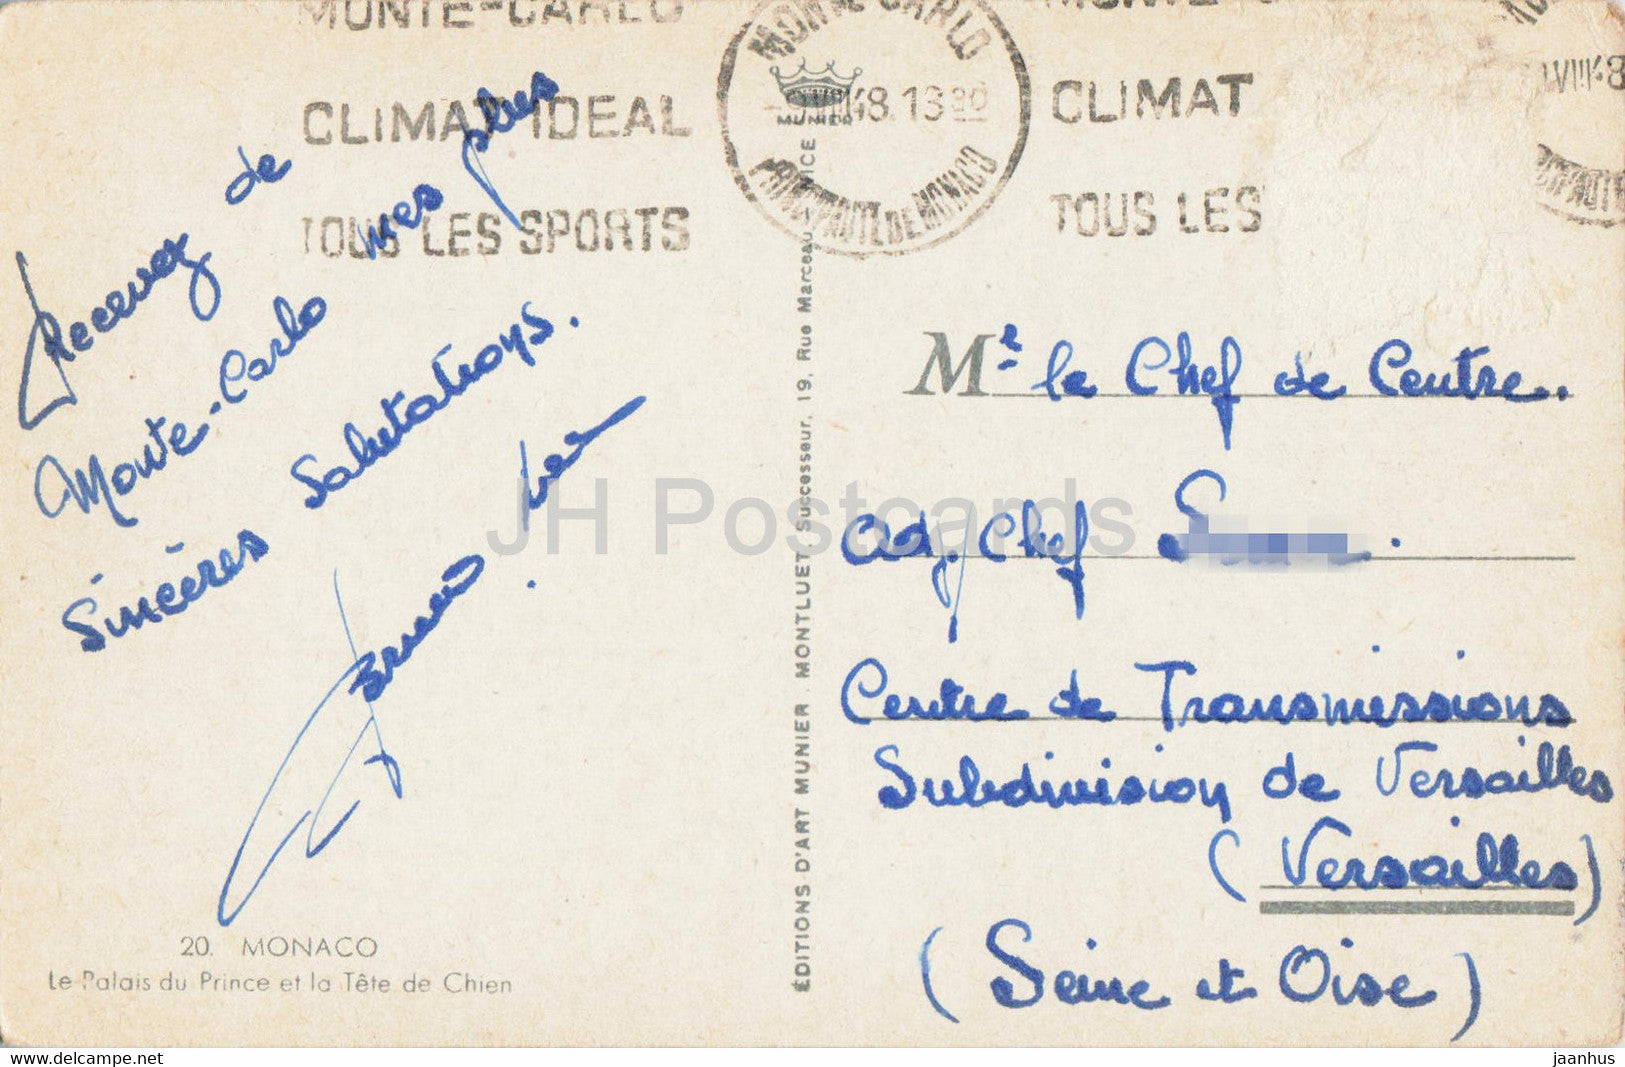 MONTE-CARLO
CLIMAT IDEAL
TOUS LES SPORTS
MONTE CARLO
48.18 30
PRINCIPAUTE DE MONACO
MUNIER
CLIMAT
TOUS LES
VIII 48
Recevez de
Monte-Carlo mes plus
Sincères Salutations.
20. MONACO
Le Palais du Prince et la Tête de Chien
ÉDITIONS D'ART MUNIER. MONTLUET, Successeur, 19, Rue Marceau, NICE
Mr le Chef de Centre.
Adj. Chef S
Centre de Transmissions
Subdivision de Versailles
(Versailles)
(Seine et Oise)
JH Postcards
www.delcampe.net
jaanhus